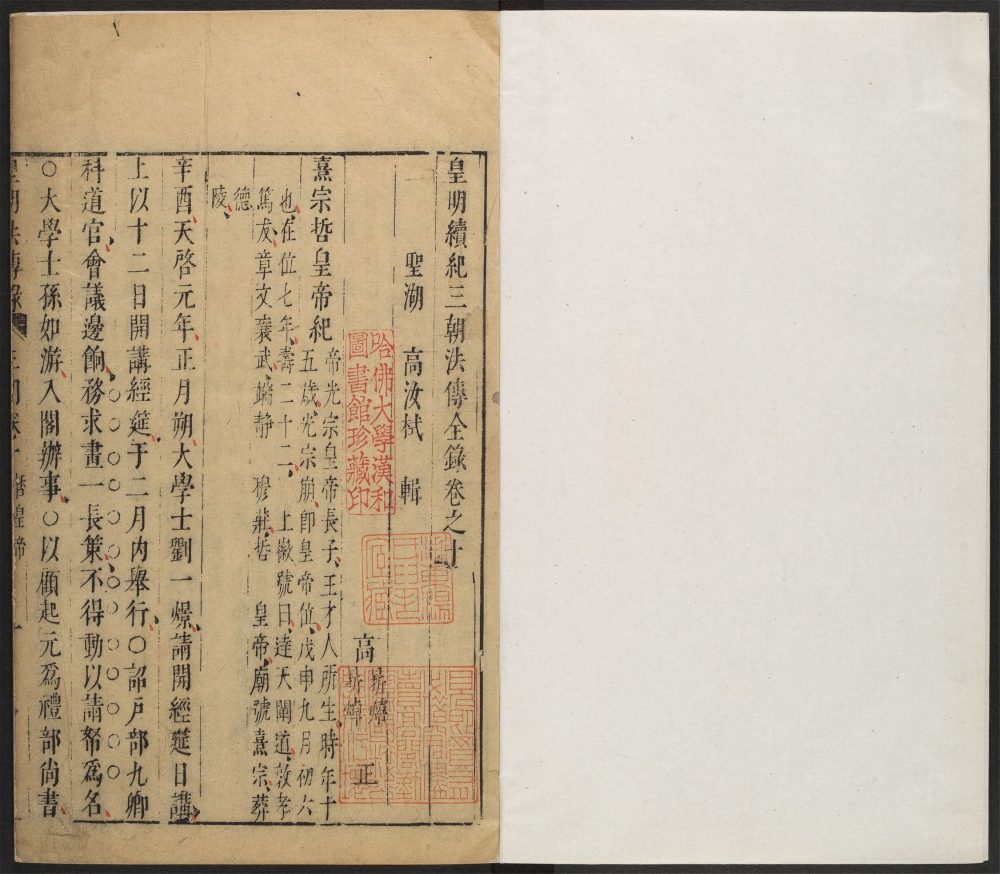 皇明續紀三朝法傳全錄卷之十
聖湖　高汝栻　輯
高　正
熹宗哲皇帝紀
帝光宗皇帝長子王才人所生時年十
五歲光宗崩即皇帝位戊申九月初六
也在位七年壽二十二　上徽號曰達天闡道敦孝
篤友章文襄武端靜　穆莊哲　皇帝廟號熹宗葬
德
陵
辛酉天啓元年正月朔大學士劉一燝請開經筵日講
上以十二日開講經筵于二月内舉行○詔戸部九卿
科道官會議邊餉務求畫一長策不得動以請帑爲名
○大學士孫如游入閣辦事○以顧起元爲禮部尚書
皇明法傳錄
哈佛大學漢和
圖書館珍藏印